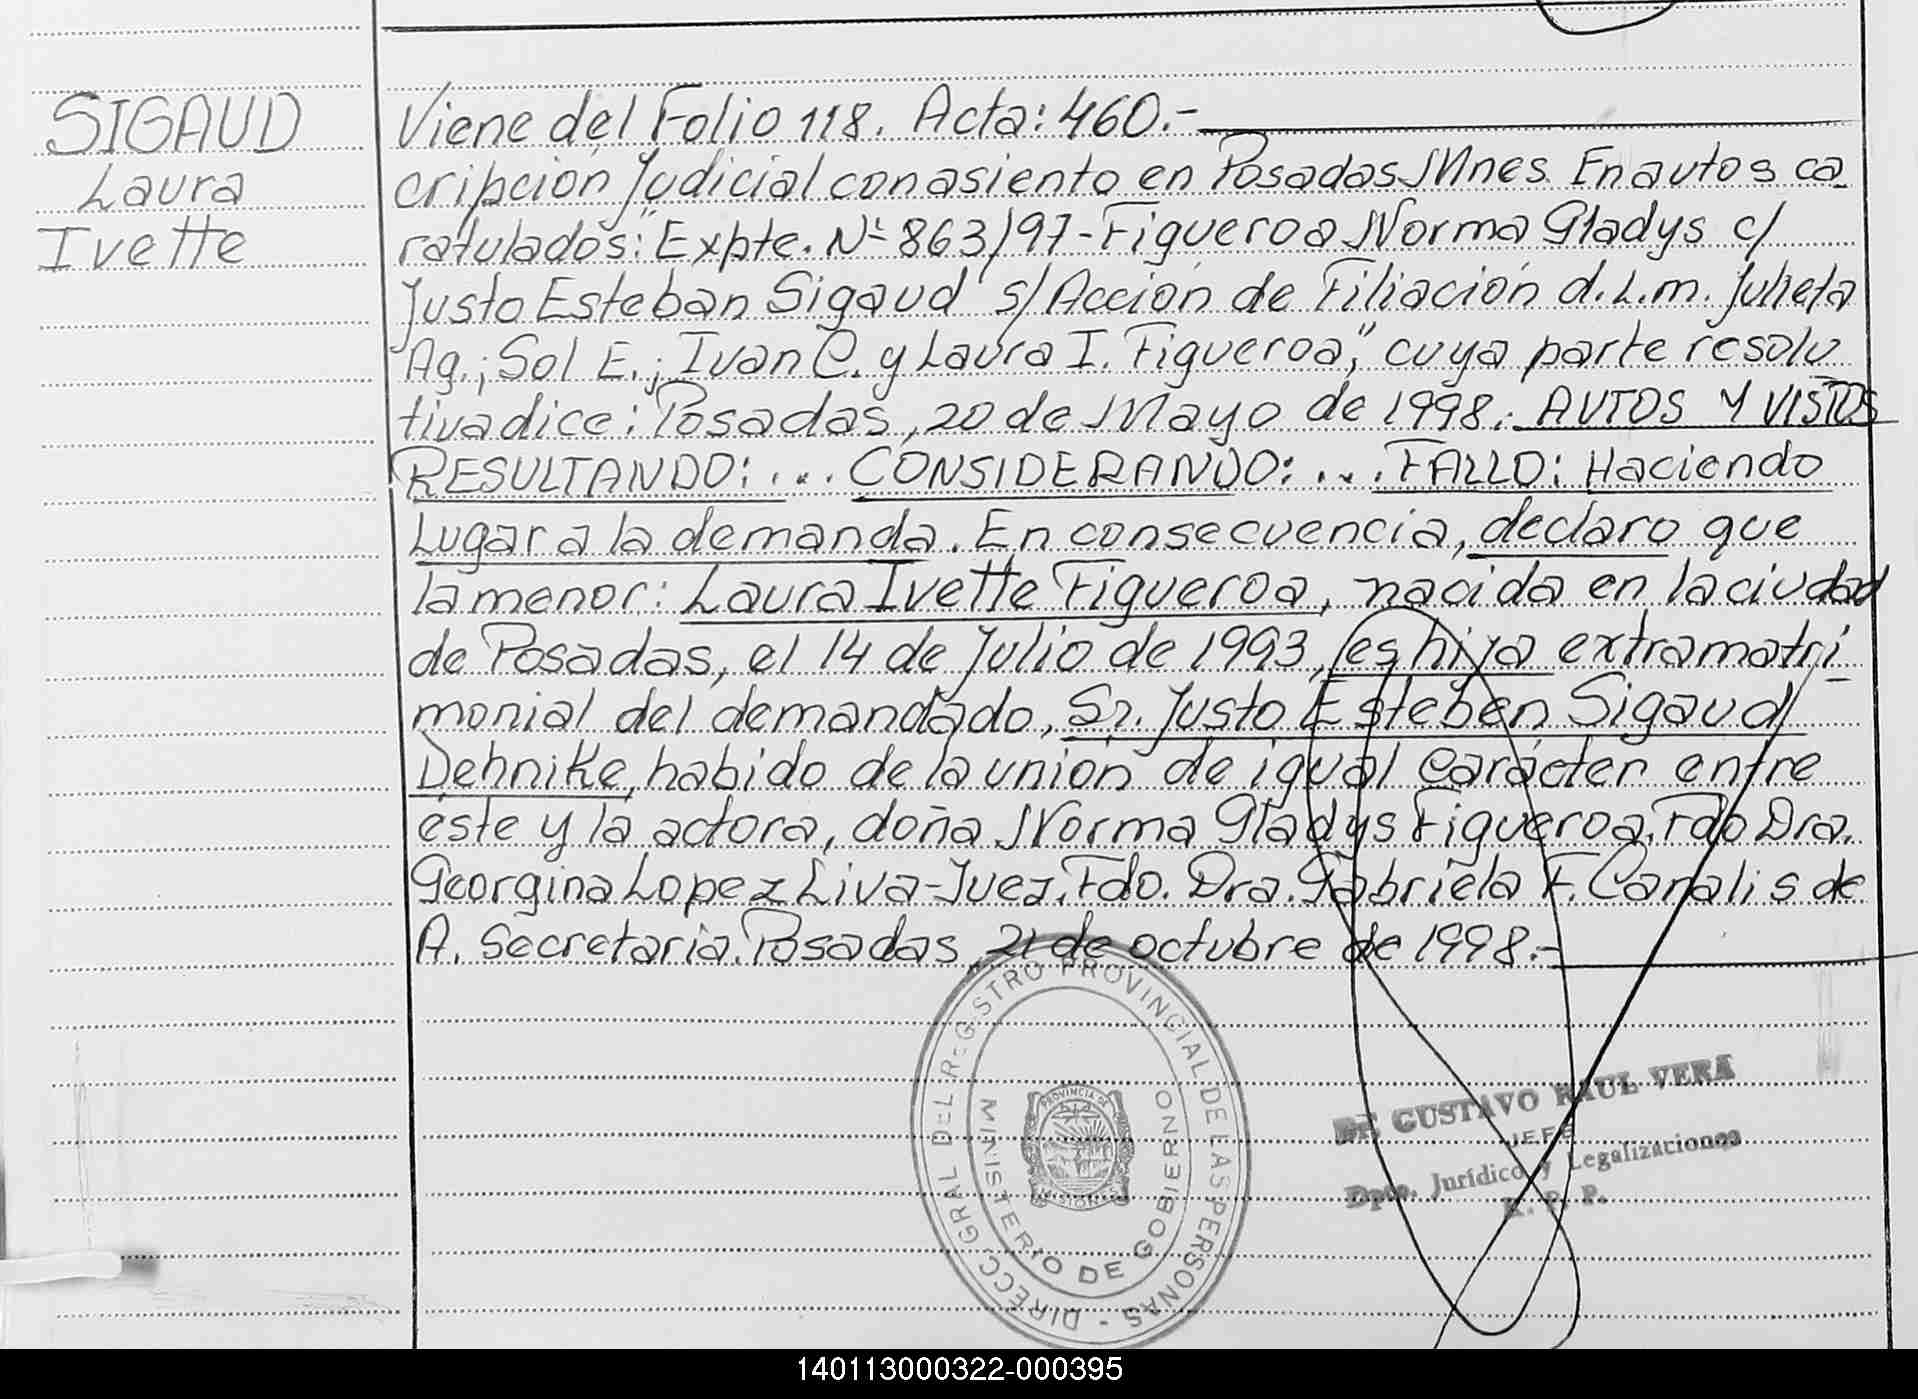 SIGAUD
Laura
Ivette
Viene del Folio 118. Acta: 460.-
cripción Judicial con asiento en Posadas Mnes. En autos ca
ratulados: "Expte. Nº 863/97-Figueroa Norma Gladys c/
Justo Esteban Sigaud s/Acción de Filiación d.l.m. Julieta
Ag.; Sol E.; Ivan C. y Laura I. Figueroa", cuya parte resolu
tiva dice: Posadas, 20 de Mayo de 1998.- AUTOS Y VISTOS
RESULTANDO: ... CONSIDERANDO: ... FALLO: Haciendo
Lugar a la demanda. En consecuencia, declaro que
la menor: Laura Ivette Figueroa, nacida en la ciudad
de Posadas, el 14 de Julio de 1993, es hija extramatri
monial del demandado, Sr. Justo Esteben Sigaud
Dehnike, habido de la unión de igual carácter entre
este y la actora, doña Norma Gladys Figueroa. Fdo Dra.
Georgina Lopez Liva-Juez. Fdo. Dra. Gabriela F. Canalis de
A. Secretaria. Posadas, 21 de octubre de 1998.-
DIRECC. GRAL DEL REGISTRO PROVINCIAL DE LAS PERSONAS -
MINISTERIO DE GOBIERNO
PROVINCIA DE
MISIONES
GUSTAVO RAUL VERA
JEFE
Dpto. Jurídico y Legalizaciones
R. P. P.
140113000322-000395